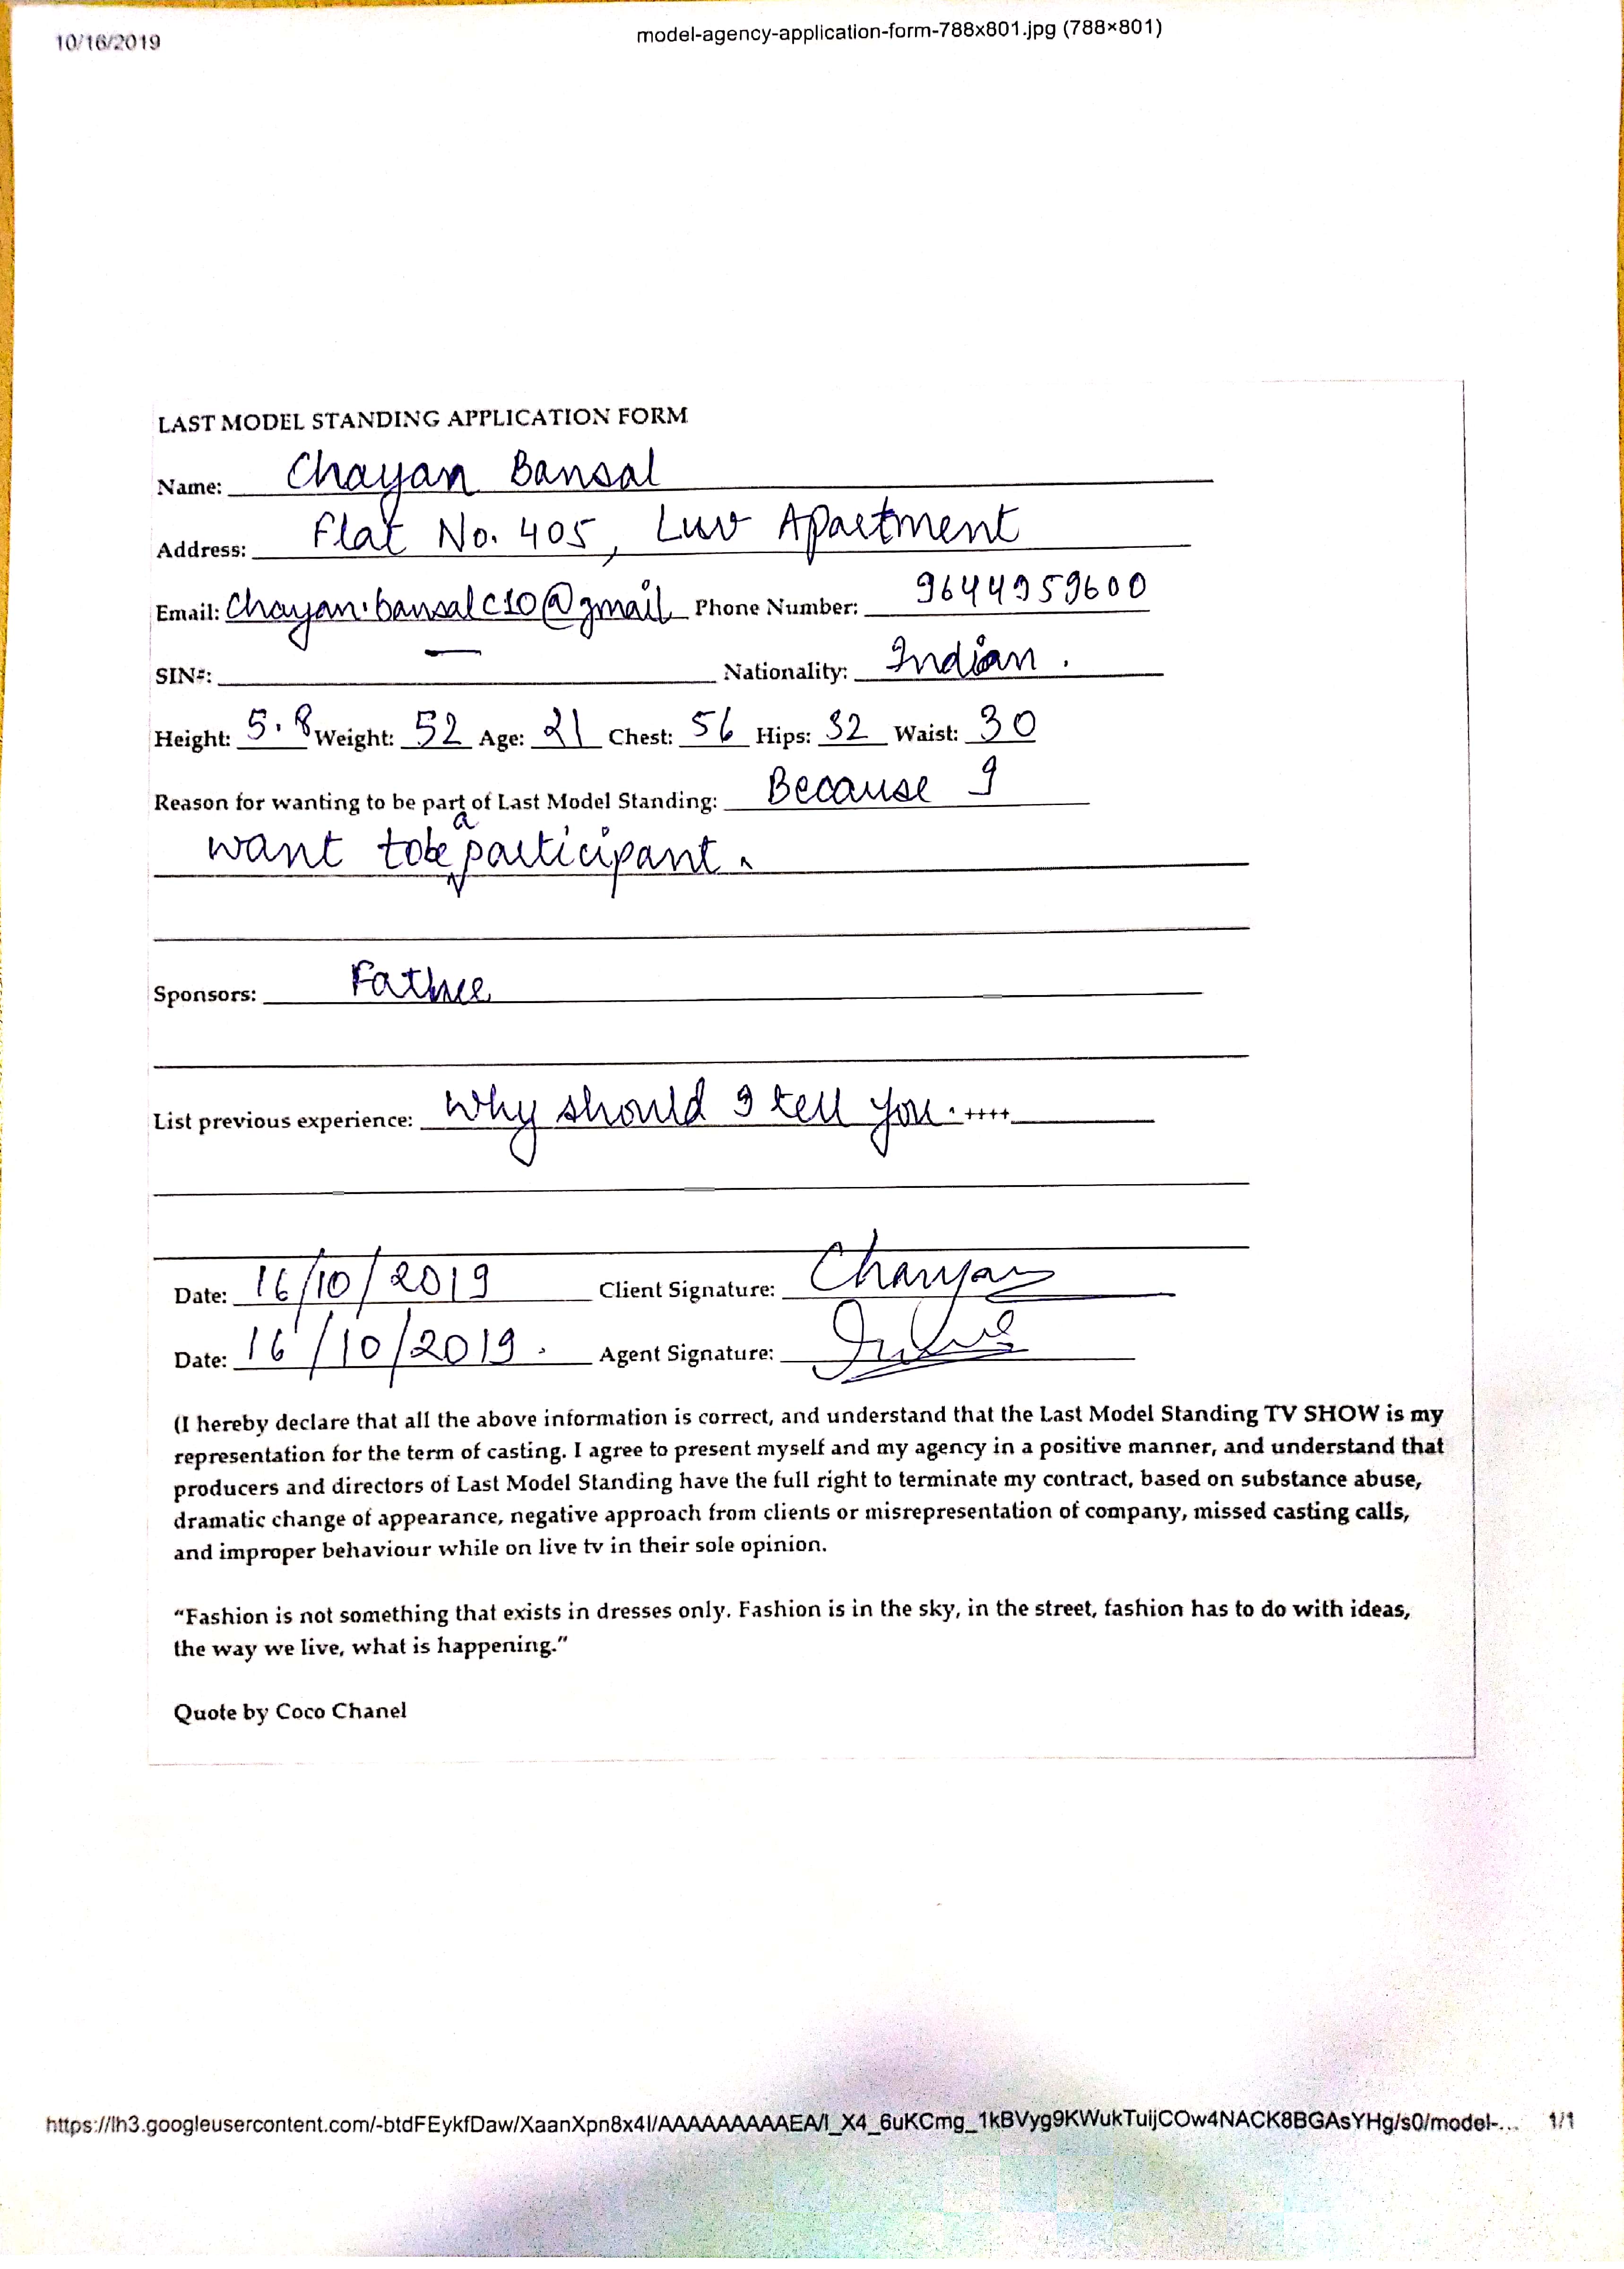 10/16/2019
model-agency-application-form-788x801.jpg (788×801)
LAST MODEL STANDING APPLICATION FORM
Name: Chayan Bansal
Address: Flat No. 405, Luv Apartment
Email: Chayan.bansalc10@gmail Phone Number: 9644959600
SIN#: — Nationality: Indian.
Height: 5.8 Weight: 52 Age: 21 Chest: 56 Hips: 32 Waist: 30
Reason for wanting to be part of Last Model Standing: Because I
want to be a participant.
Sponsors: Father
List previous experience: Why should I tell you. ++++
Date: 16/10/2019 Client Signature: Chayan
Date: 16/10/2019. Agent Signature:
(I hereby declare that all the above information is correct, and understand that the Last Model Standing TV SHOW is my
representation for the term of casting. I agree to present myself and my agency in a positive manner, and understand that
producers and directors of Last Model Standing have the full right to terminate my contract, based on substance abuse,
dramatic change of appearance, negative approach from clients or misrepresentation of company, missed casting calls,
and improper behaviour while on live tv in their sole opinion.
“Fashion is not something that exists in dresses only. Fashion is in the sky, in the street, fashion has to do with ideas,
the way we live, what is happening.”
Quote by Coco Chanel
https://lh3.googleusercontent.com/-btdFEykfDaw/XaanXpn8x4I/AAAAAAAAAEA/I_X4_6uKCmg_1kBVyg9KWukTuijCOw4NACK8BGAsYHg/s0/model-... 1/1